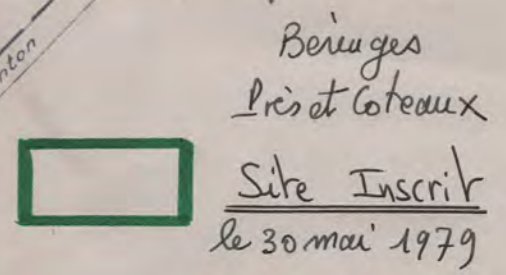 nton
Berenges
Près et Coteaux
Site Inscrit
le 30 mai 1979